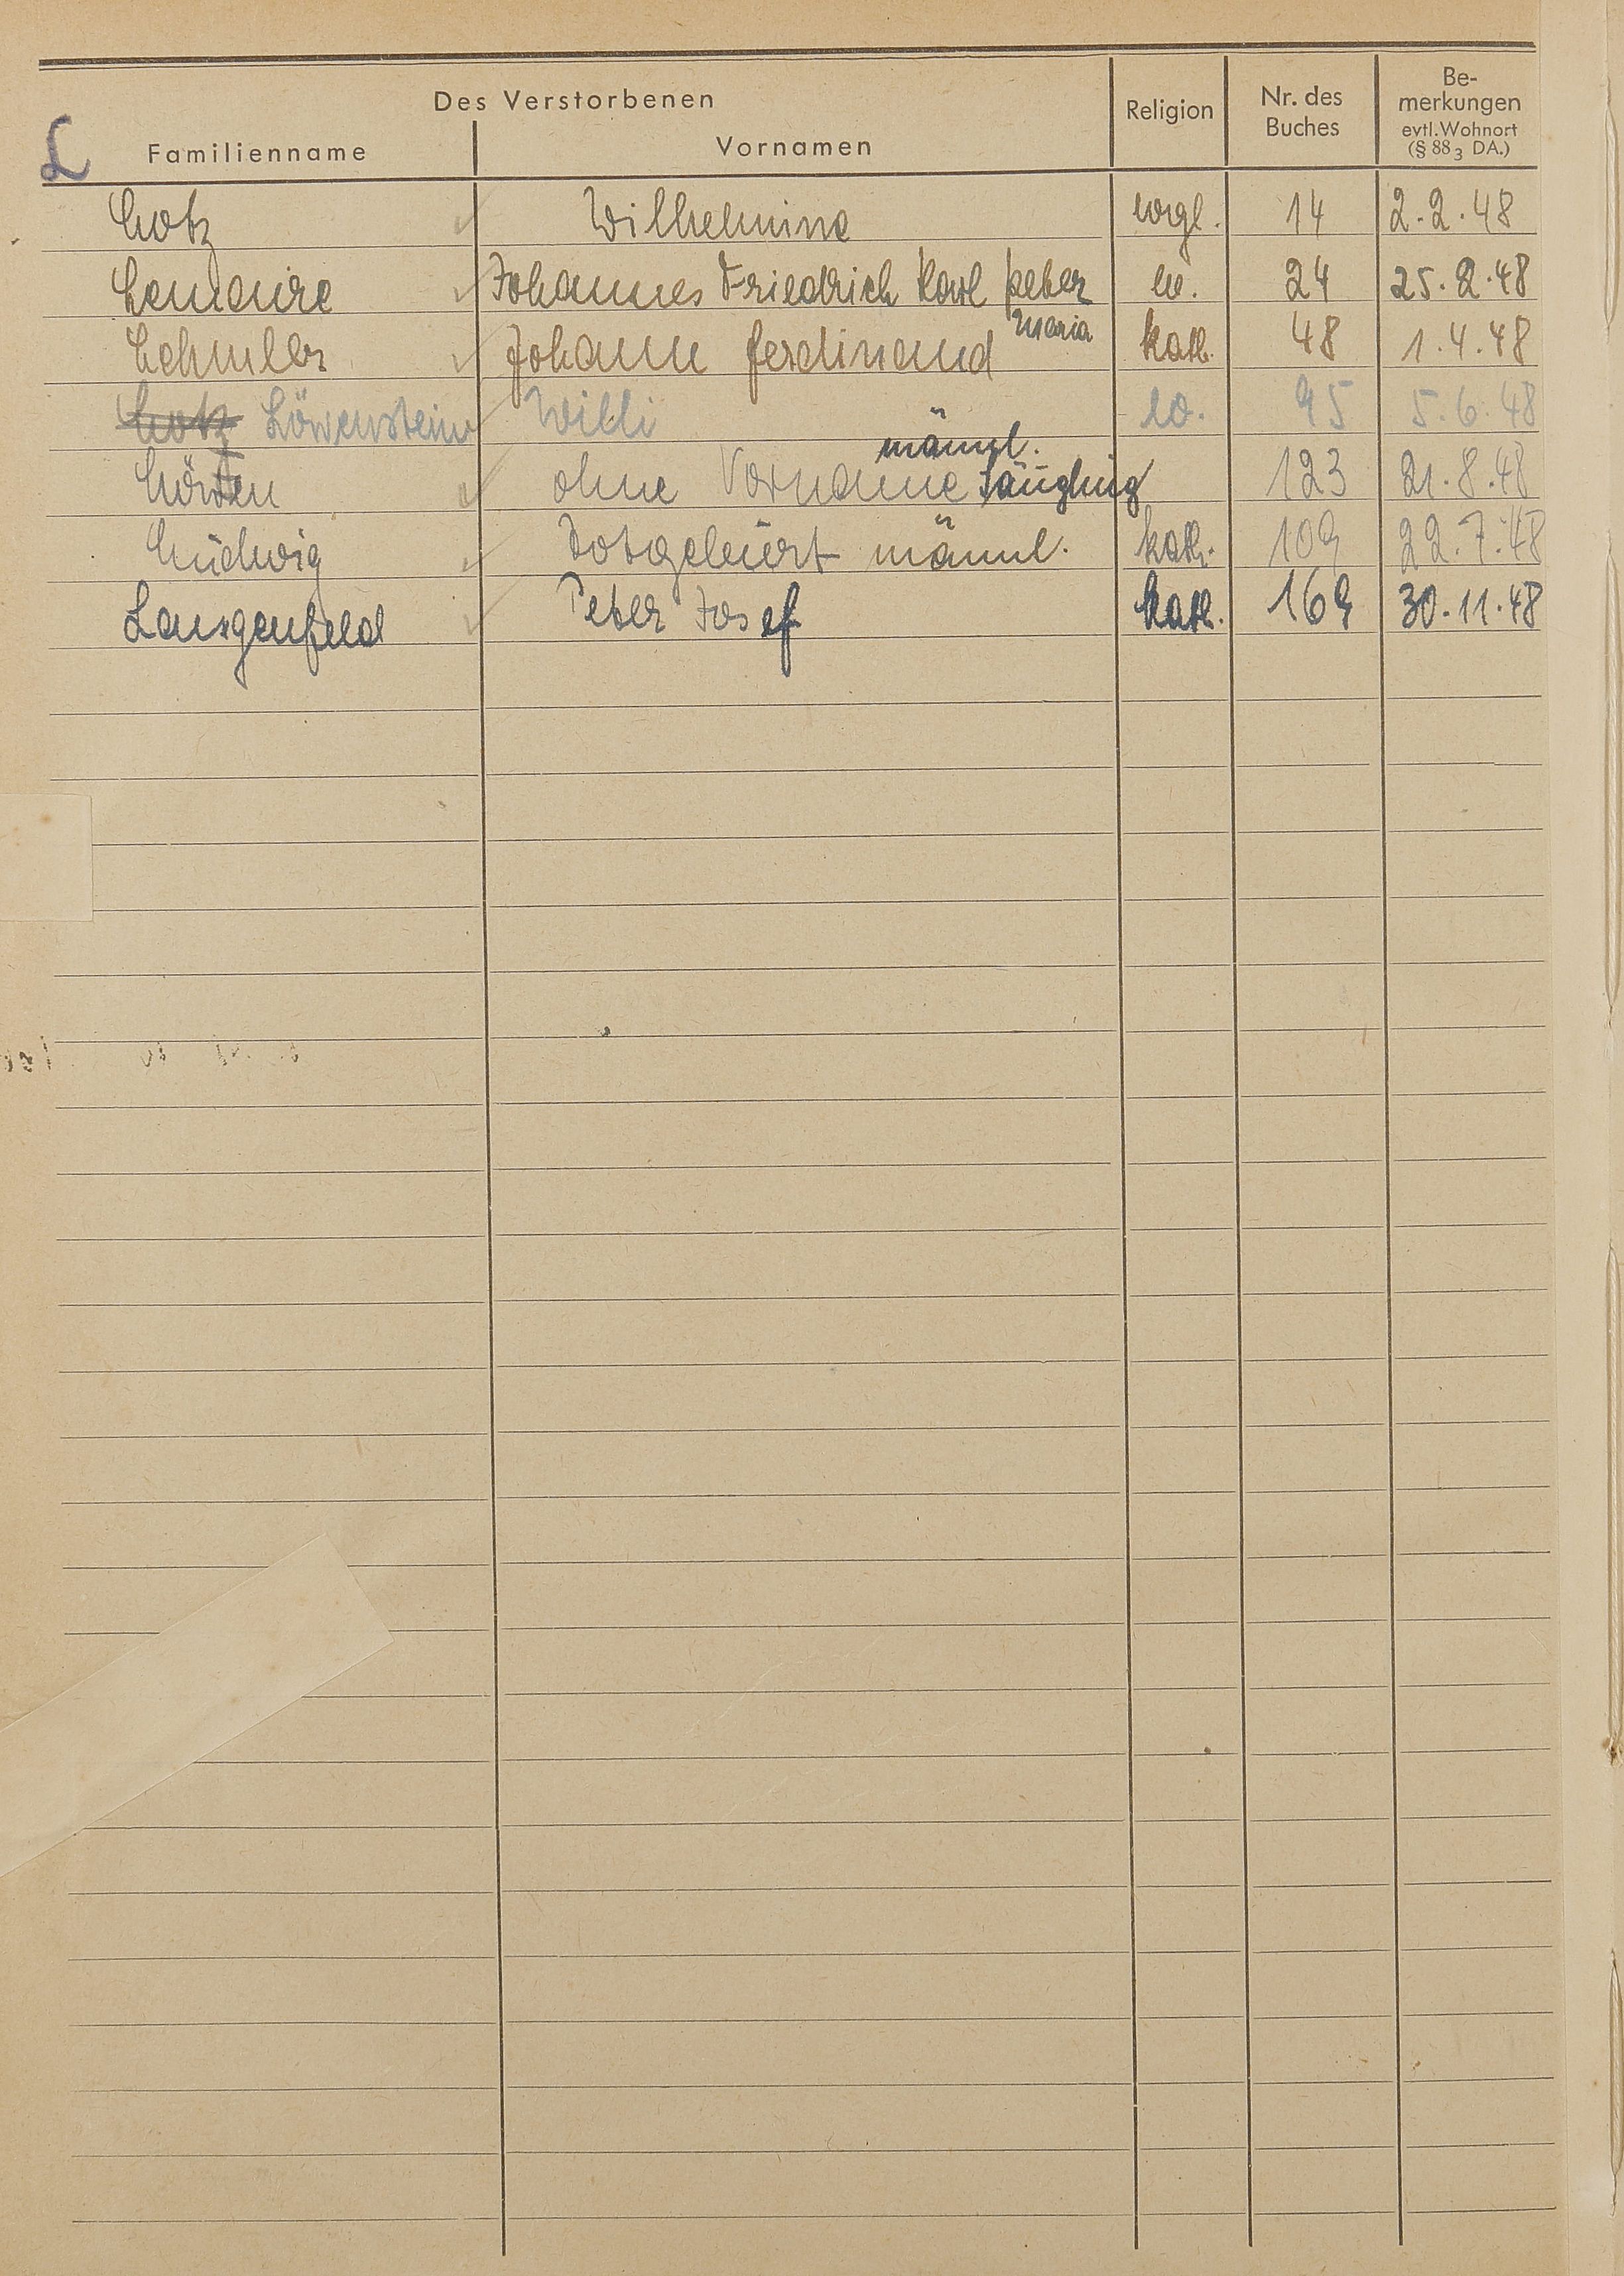 Des Verstorbenen
Religion
Nr. des Buches
Be-
merkungen
evtl. Wohnort
(§ 88 3 DA.)
L Familienname Vornamen
Lotz Wilhelmine evgl. 14 2.2.48
Lemaire Johannes Friedrich Karl Peter ev. 24 25.2.48
Maria
Lehmler Johann Ferdinand kath. 48 1.4.48
Lotz Löwenstein Willi ev. 95 5.6.48
männl.
ohne Vorname Säugling 123 21.8.48
Lüdwig Totgebürt männl. kath. 109 22.7.48
Langenfeld Peter Josef kath. 169 30.11.48